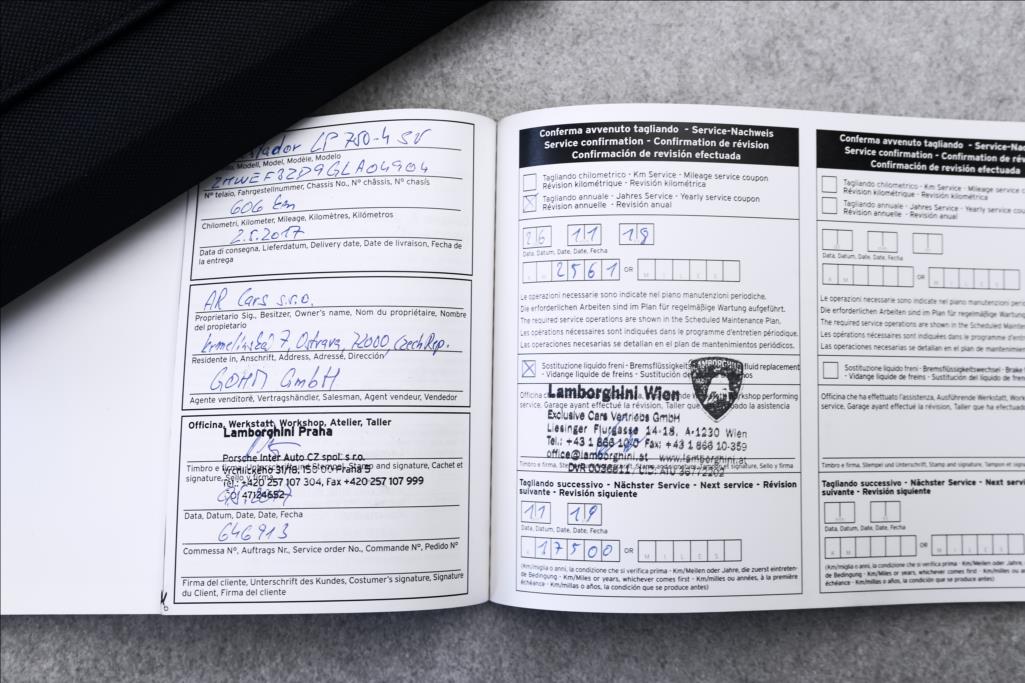 LP 750-4 SV
Model, Modèle, Modelo
ZHWEF3ZD9GLA04904
N° telaio, Fahrgestellnummer, Chassis No., N° châssis, N° chasis
606 km
Chilometri, Kilometer, Mileage, Kilomètres, Kilómetros
2.5.2017
Data di consegna, Lieferdatum, Delivery date, Date de livraison, Fecha de
la entrega
AR Cars s.r.o.
Proprietario Sig., Besitzer, Owner's name, Nom du propriétaire, Nombre
del propietario
7, Ostrava, 72000, Czech Rep.
Residente in, Anschrift, Address, Adressé, Dirección
GOHM GmbH
Agente venditoré, Vertragshändler, Salesman, Agent vendeur, Vendedor
Officina, Werkstatt, Workshop, Atelier, Taller
Lamborghini Praha
Porsche Inter Auto CZ spol. s r.o.
Vrchlického 31/18, 150 00 Praha 5
Timbro e firma, Unterschrift und Stempel, Stamp and signature, Cachet et
signature, Sello y firma
Tel.: +420 257 107 304, Fax +420 257 107 999
Data, Datum, Date, Date, Fecha
646913
Commessa N°, Auftrags Nr., Service order No., Commande N°, Pedido N°
Firma del cliente, Unterschrift des Kundes, Costumer's signature, Signature
du Client, Firma del cliente
Conferma avvenuto tagliando - Service-Nachweis
Service confirmation - Confirmation de révision
Confirmación de revisión efectuada
Tagliando chilometrico - Km Service - Mileage service coupon
Révision kilométrique - Revisión kilométrica
Tagliando annuale - Jahres Service - Yearly service coupon
Révision annuelle - Revisión anual
26 11 18
Data, Datum, Date, Date, Fecha
2561 OR MILES
Le operazioni necessarie sono indicate nel piano manutenzioni periodiche.
Die erforderlichen Arbeiten sind im Plan für regelmäßige Wartung aufgeführt.
The required service operations are shown in the Scheduled Maintenance Plan.
Les opérations nécessaires sont indiquées dans le programme d'entretien périodique.
Las operaciones necesarias se detallan en el plan de mantenimientos periódicos.
Sostituzione liquido freni - Bremsflüssigkeits fluid replacement
- Vidange liquide de freins - Sustitución de
LAMBORGHINI
Lamborghini Wien
Officina workshop performing
service, Garage ayant effectué la révision, Taller que ha efectuado la asistencia
Exclusive Cars Vertriebs GmbH
Liesinger Flurgasse 14-18, A-1230 Wien
Tel.: +43 1 866 10-0 Fax: +43 1 866 10-359
office@lamborghini.at www.lamborghini.at
Timbro e firma, Stempel und Unterschrift, Stamp and signature, Tampon et signature, Sello y firma
Tagliando successivo - Nächster Service - Next service - Révision
suivante - Revisión siguiente
11 19
Data, Datum, Date, Date, Fecha
17500 OR MILES
(Km/miglia o anni, la condizione che si verifica prima - Km/Meilen oder Jahre, die zuerst eintreten-
de Bedingung - Km/Miles or years, whichever comes first - Km/milles ou années, à la première
échéance - Km/millas o años, la condición que se produce antes)
Conferma avvenuto tagliando - Service-Na
Service confirmation - Confirmation de rév
Confirmación de revisión efectuada
Tagliando chilometrico - Km Service - Mileage service c
Révision kilométrique - Revisión kilométrica
Tagliando annuale - Jahres Service - Yearly service coup
Révision annuelle - Revisión anual
Data, Datum, Date, Date, Fecha
KM OR MILES
Le operazioni necessarie sono indicate nel piano manutenzioni period
Die erforderlichen Arbeiten sind im Plan für regelmäßige Wartung
The required service operations are shown in the Scheduled Mainten
Les opérations nécessaires sont indiquées dans le programme d'entre
Las operaciones necesarias se detallan en el plan de mantenimien
Sostituzione liquido freni - Bremsflüssigkeitswechsel - Brake
- Vidange liquide de freins - Sustitución del líquido de fren
Officina che ha effettuato l'assistenza, Ausführende Werkstatt, Work
service, Garage ayant effectué la révision, Taller que ha efectuado
Timbro e firma, Stempel und Unterschrift, Stamp and signature, Tampon et sign
Tagliando successivo - Nächster Service - Next servic
suivante - Revisión siguiente
Data, Datum, Date, Date, Fecha
KM OR MILES
(Km/miglia o anni, la condizione che si verifica prima - Km/Meilen oder Ja
de Bedingung - Km/Miles or years, whichever comes first - Km/milles
échéance - Km/millas o años, la condición que se produce antes)